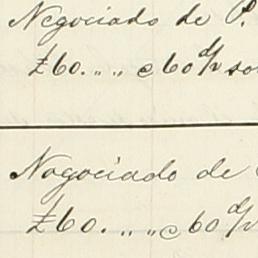 Negociado de P.
£60. „ „ c 60 d/v so
Nogociado de
£60. „ „ c 60 d/v